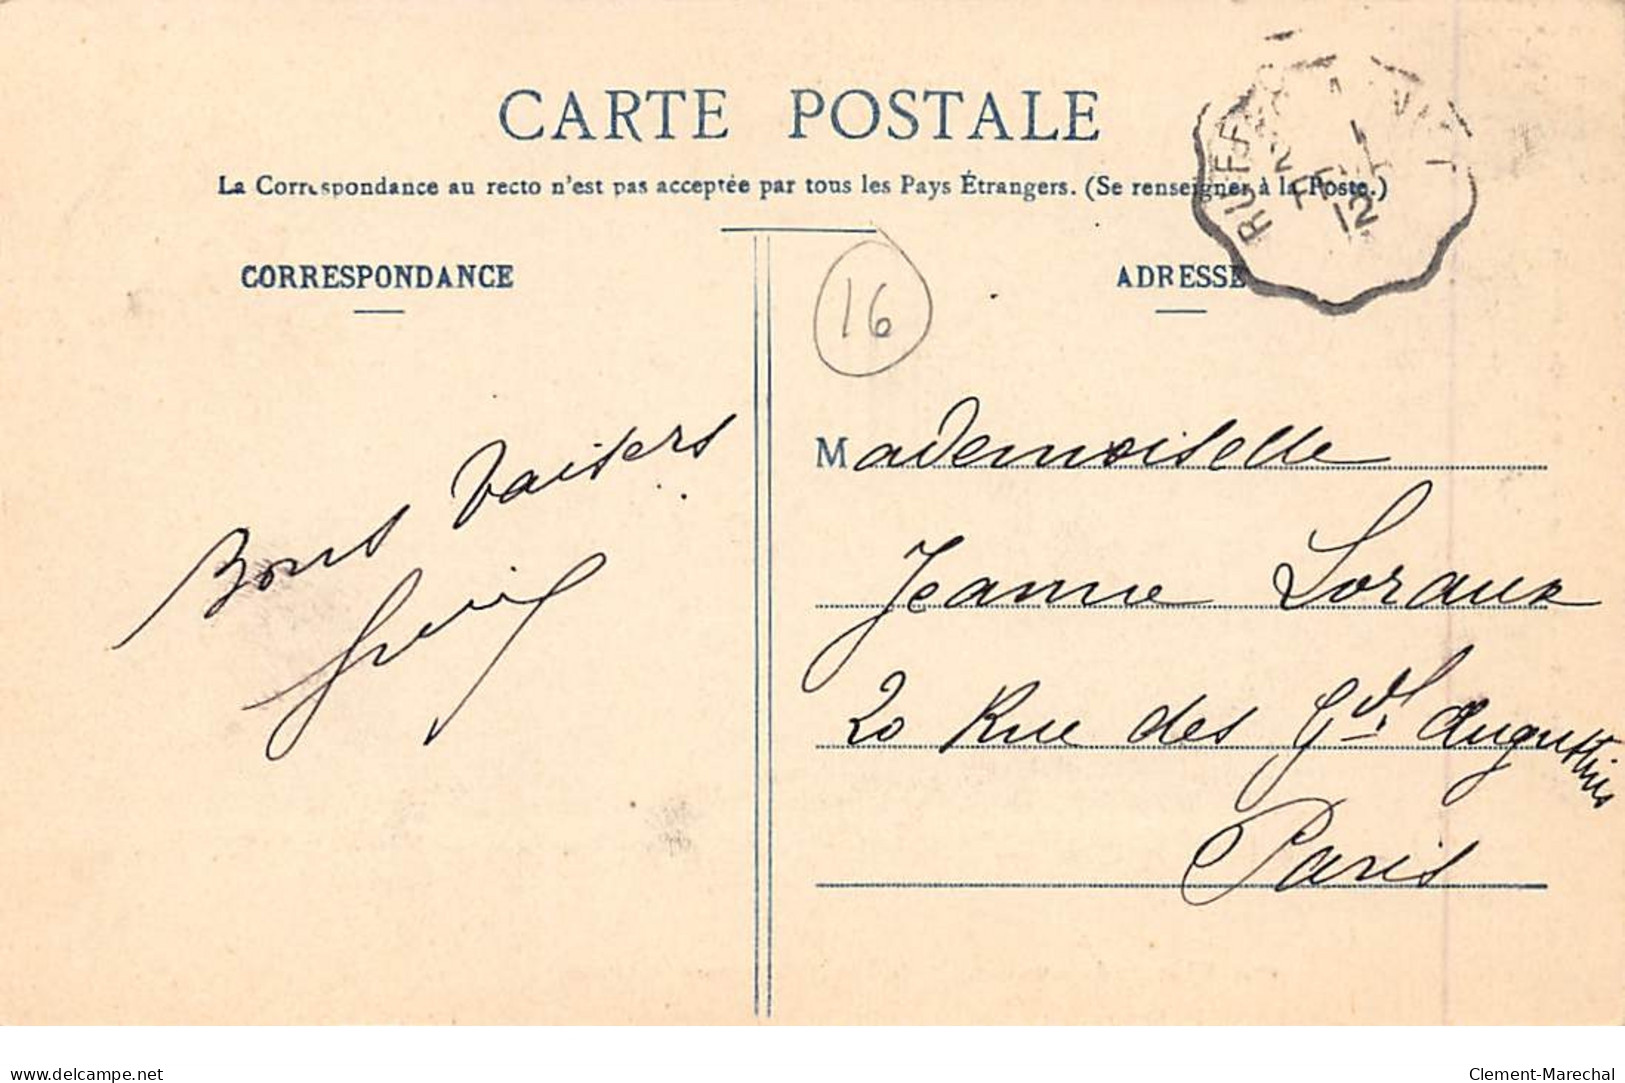 CARTE POSTALE
La Correspondance au recto n'est pas acceptée par tous les Pays Étrangers. (Se renseigner à la Poste.)
RUFFEC
12
CORRESPONDANCE
ADRESSE
16
Bons baisers
Mademoiselle
Jeanne Loraux
20 Rue des Gds Augustins
Paris
delcampe.net
Clement-Marechal